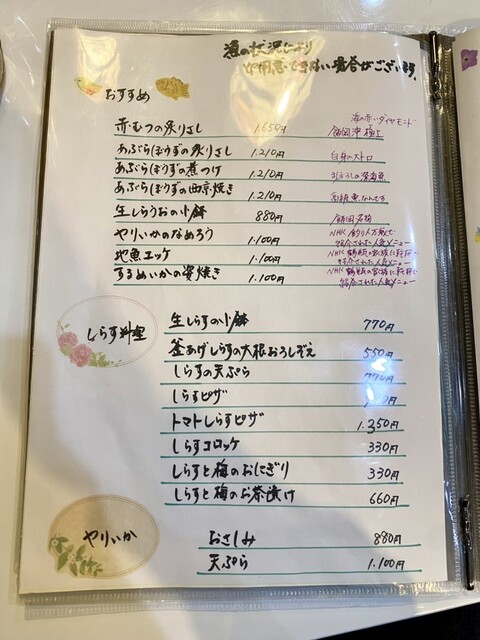 漁の状況により
ご用意できない場合がございます。
おすすめ
赤むつの炙りさし 1.650円 海の赤いダイヤモンド 飯岡沖 極上
あぶらぼうずの炙りさし 1.210円 白身のトロ
あぶらぼうずの煮つけ 1.210円 まぼろしの深海魚
あぶらぼうずの西京焼き 1.210円 高級魚なんです
生しらうおの小鉢 880円 飯岡名物
やりいかのなめろう 1.100円 NHK 釣り人万歳で 紹介された人気メニュー
地魚ユッケ 1.100円 NHK 鶴瓶の家族に乾杯で 紹介された人気メニュー
するめいかの姿焼き 1.100円 NHK 鶴瓶の家族に乾杯で 紹介された人気メニュー
しらす料理
生しらすの小鉢 770円
釜あげしらすの大根おろしぞえ 550円
しらすの天ぷら
しらすピザ
トマトしらすピザ 1.350円
しらすコロッケ 330円
しらすと梅のおにぎり 330円
しらすと梅のお茶漬け 660円
やりいか
おさしみ 880円
天ぷら 1.100円